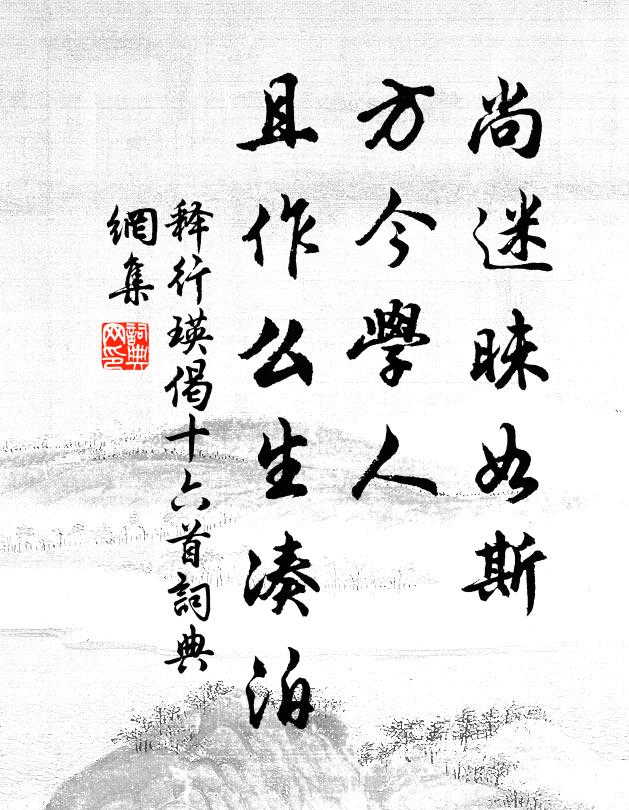 尚迷昧如斯
方今學人
且作么生湊泊
释行瑛偈十六首詞典
網集
詞典
网印